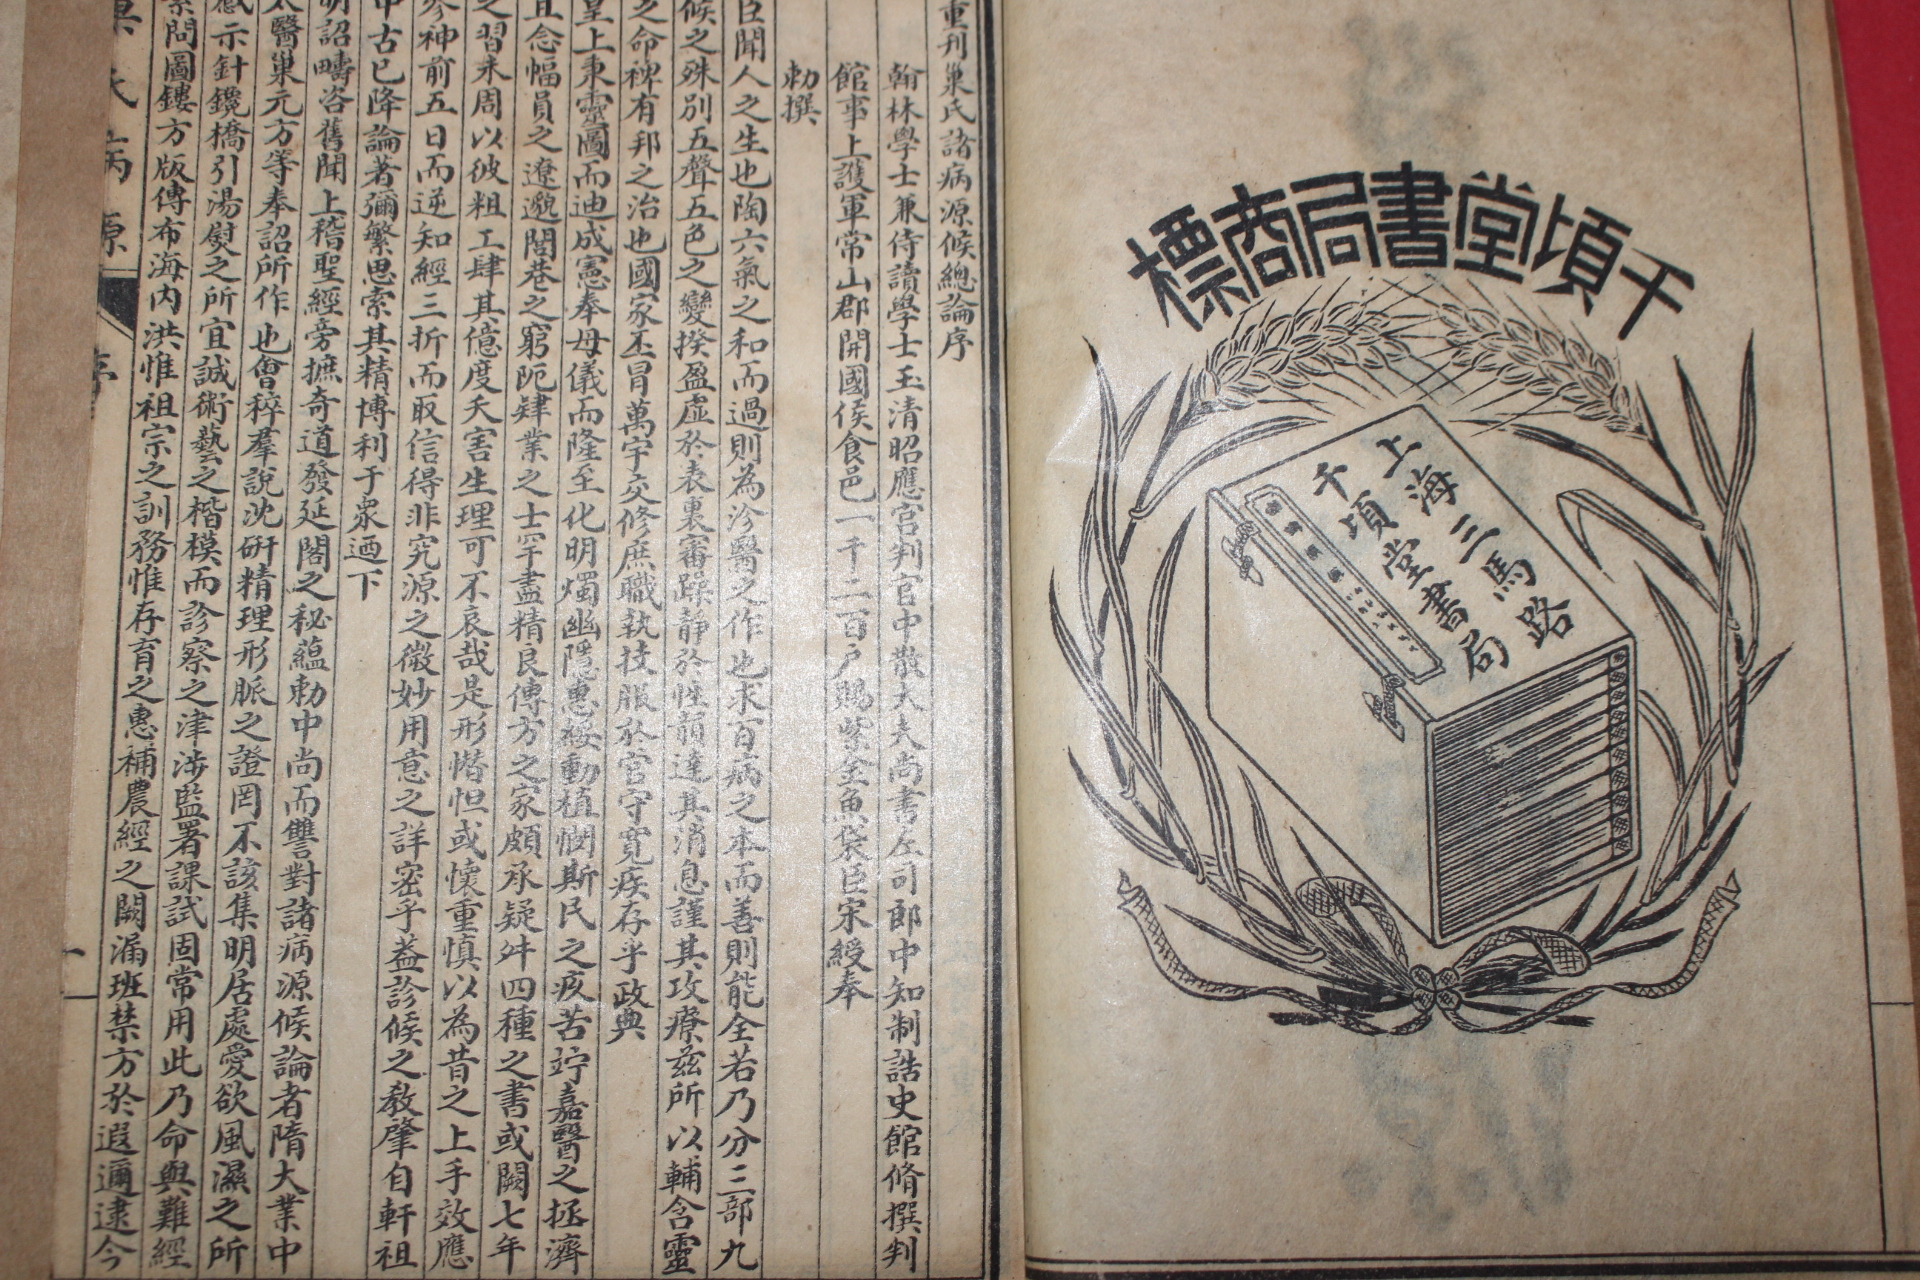 千頃堂書局商標
上海三馬路
千頃堂書局
重刊巢氏諸病源候總論序
翰林學士兼侍讀學士玉清昭應宮判官中散大夫尚書左司郎中知制誥史館脩撰判
館事上護軍常山郡開國侯食邑一千二百戶賜紫金魚袋臣宋綬奉
勅撰
臣聞人之生也陶六氣之和而過則為沴醫之作也求百病之本而善則能全若乃分三部九
候之殊別五聲五色之變揆盈虛於表裏審躁靜於性韻達其消息謹其攻療茲所以輔含靈
之命裨有邦之治也國家丕冒萬宇交修庶職執技服於官守寬疾存乎政典
皇上秉靈圖而迪成憲奉母儀而隆至化明燭幽隱惠綏動植憫斯民之疾苦竚嘉醫之拯濟
且念幅員之遼邈閭巷之窮阨肄業之士罕盡精良傳方之家頗承疑舛四種之書或闕七年
之習未周以彼粗工肆其億度夭害生理可不哀哉是形憯怛或懷重慎以為昔之上手效應
參神前五日而逆知經三折而取信得非究源之微妙用意之詳密乎蓋診候之教肇自軒祖
中古已降論著彌繁思索其精博利于眾迺下
明詔疇咨舊聞上稽聖經旁摭奇道發延閣之秘蘊勅中尚而讐對諸病源候論者隋大業中
太醫巢元方等奉詔所作也會稡羣說沈研精理形脈之證罔不該集明居處愛欲風濕之所
感示針鑱橋引湯熨之所宜誠術藝之楷模而診察之津涉監署課試固常用此乃命與難經
素問圖鏤方版傳布海內洪惟祖宗之訓務惟存育之惠補農經之闕漏班禁方於遐邇逮今
巢氏病源
序
一